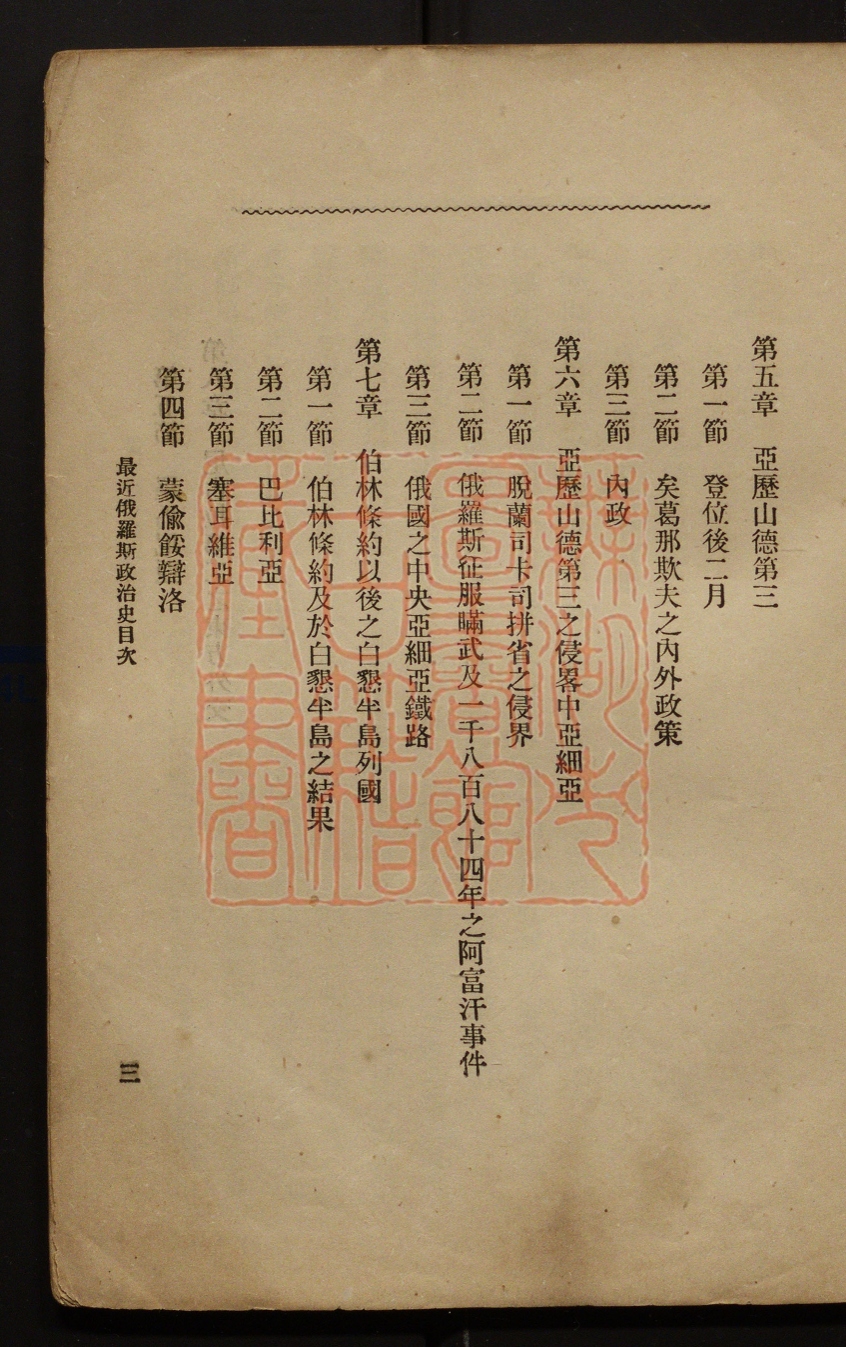 第五章　亞歷山德第三
第一節　登位後二月
第二節　矣葛那欺夫之內外政策
第三節　內政
第六章　亞歷山德第三之侵畧中亞細亞
第一節　脫蘭司卡司拼省之侵界
第二節　俄羅斯征服瞞武及一千八百八十四年之阿富汗事件
第三節　俄國之中央亞細亞鐵路
第七章　伯林條約以後之白懇半島列國
第一節　伯林條約及於白懇半島之結果
第二節　巴比利亞
第三節　塞耳維亞
第四節　蒙偸餒辯洛
最近俄羅斯政治史目次
三